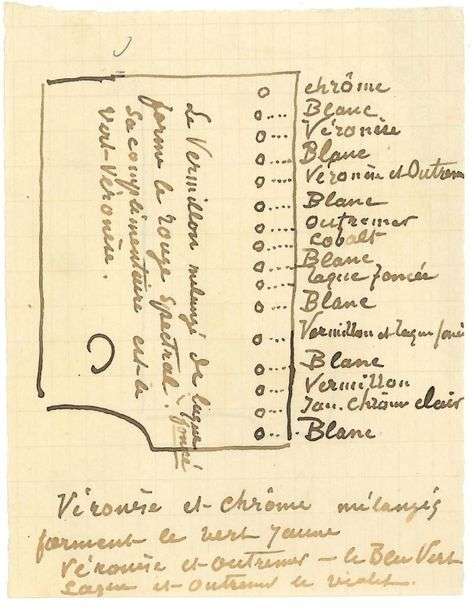 chrôme
Blanc
Véronèse
Blanc
Véronèse et Outrem
Blanc
Outremer
Cobalt
Blanc
laque foncée
Blanc
Vermillon et laque foncé
Blanc
Vermillon
Jau. Chrôme clair
Blanc
Le Vermillon mélangé de laque foncé
forme le rouge spectral.
Sa complimentaire est le
Vert-Véronèse.
Véronèse et chrôme mélangés
forment le vert jaune
Véronèse et outremer – le Bleu Vert
Laque et outremer le violet.